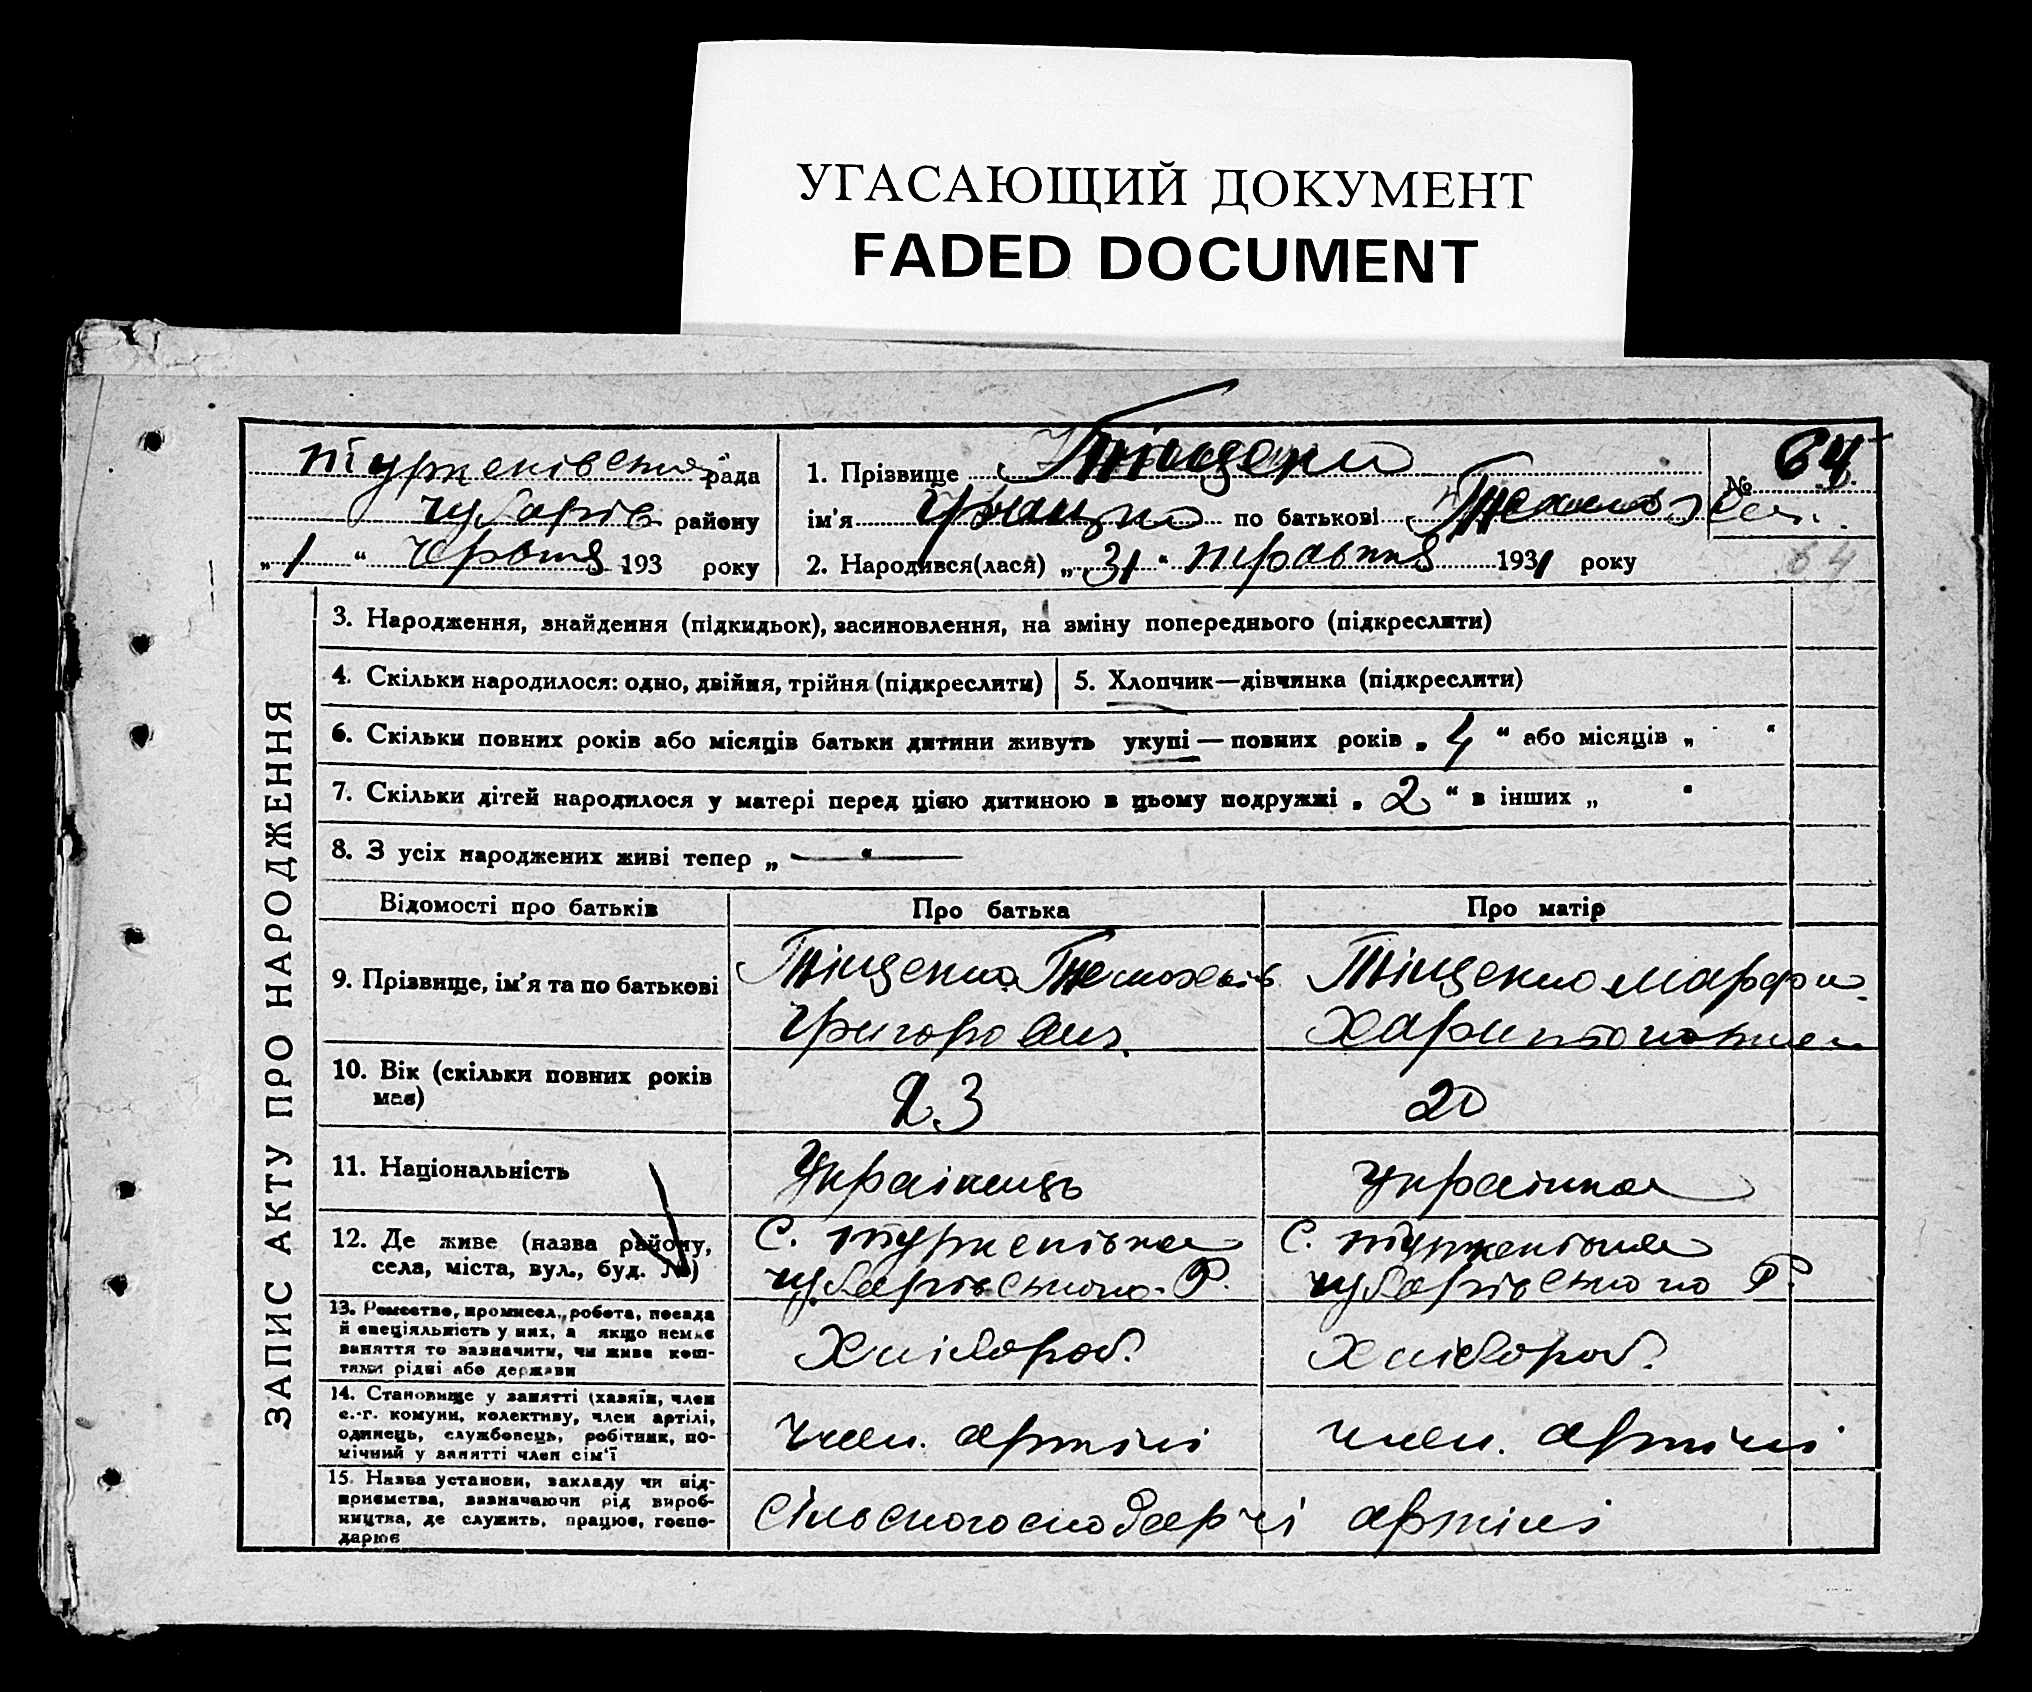 УГАСАЮЩИЙ ДОКУМЕНТ
FADED DOCUMENT
Туркенівська рада
Чубарів району
„ 1 “ Червня 193 року
1. Прізвище Тіщенко
ім'я Грицько по батькові
2. Народився(лася) „ 31 “ травня 1931 року
№ 64
64
ЗАПИС АКТУ ПРО НАРОДЖЕННЯ
3. Народження, знайдення (підкидьок), засиновлення, на зміну попереднього (підкреслити)
4. Скільки народилося: одно, двійня, трійня (підкреслити)
5. Хлопчик—дівчинка (підкреслити)
6. Скільки повних років або місяців батьки дитини живуть укупі — повних років „ 4 “ або місяців „ “
7. Скільки дітей народилося у матері перед цією дитиною в цьому подружжі „ 2 “ в інших „ “
8. З усіх народжених живі тепер „ — “
Відомості про батьків
Про батька
Про матір
9. Прізвище, ім'я та по батькові
Тіщенко
Григорович
Тіщенко Марфа
Харитоновна
10. Вік (скільки повних років
має)
23
20
11. Національність
Українець
Українка
12. Де живе (назва району,
села, міста, вул., буд. №)
С. Туркенівка
Чубарівського Р.
С. Туркенівка
Чубарівського Р.
13. Ремество, промисел, робота, посада
й спеціяльність у них, а якщо немає
заняття то зазначити, чи живе кош-
тами рідні або держави
Хлібороб.
Хлібороб.
14. Становище у занятті (хазяїн, член
с.-г. комуни, колективу, член артілі,
одинець, службовець, робітник, по-
мічний у занятті член сім'ї
член. артілі
член. артілі
15. Назва установи, закладу чи під-
приємства, зазначаючи рід вироб-
ництва, де служить, працює, госпо-
дарює
артілі